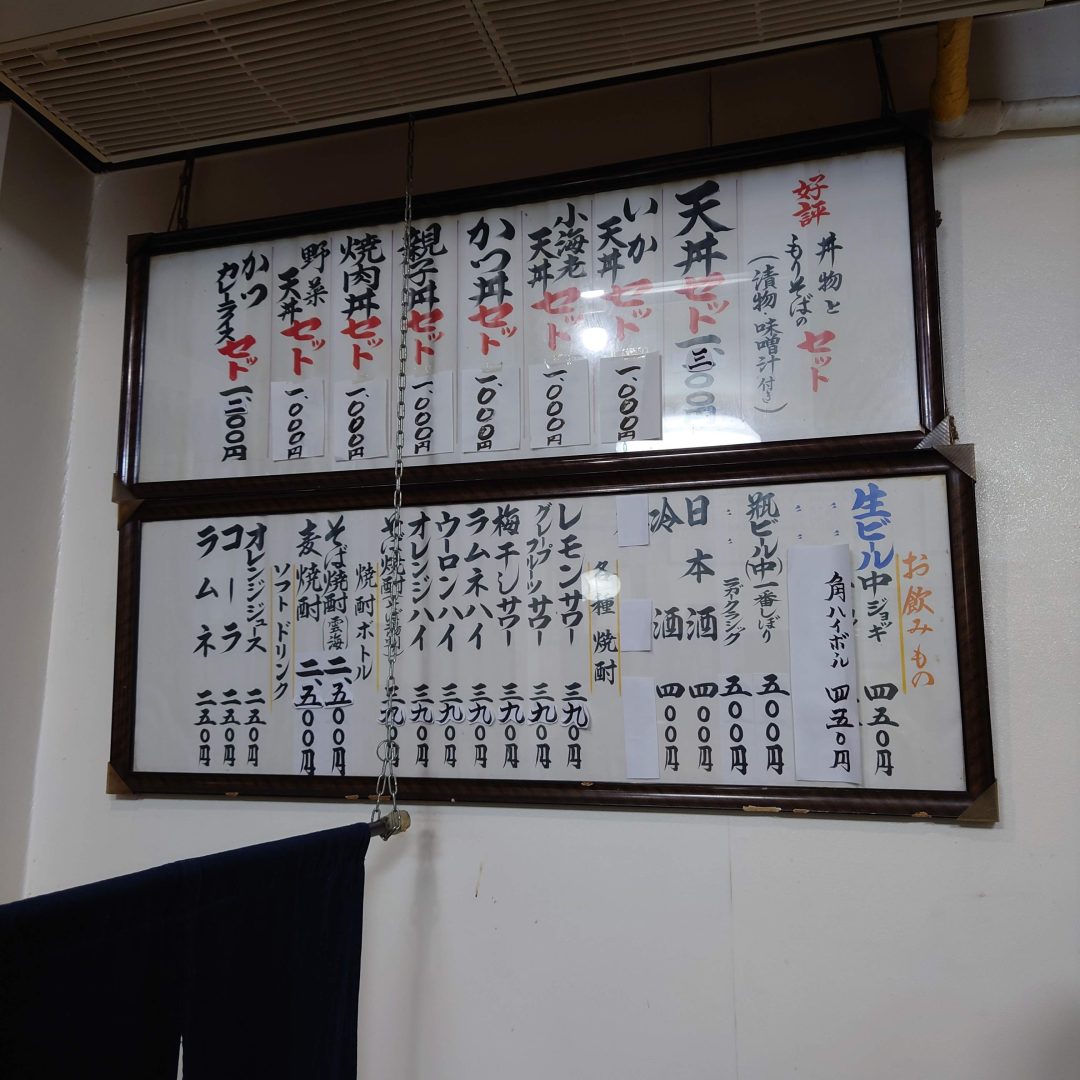 好評
丼物と
もりそばの
セット
(漬物・味噌汁付き)
天丼セット 一、三〇〇円
いか天丼セット 一、〇〇〇円
小海老天丼セット 一、〇〇〇円
かつ丼セット 一、〇〇〇円
親子丼セット 一、〇〇〇円
焼肉丼セット 一、〇〇〇円
野菜天丼セット 一、〇〇〇円
かつカレーライスセット 一、二〇〇円
お飲みもの
生ビール中ジョッキ 四五〇円
角ハイボール 四五〇円
瓶ビール(中)一番しぼり 五〇〇円
五〇〇円
日本酒 四〇〇円
冷酒 四〇〇円
各種焼酎
レモンサワー 三九〇円
グレープフルーツサワー 三九〇円
梅干しサワー 三九〇円
ラムネハイ 三九〇円
ウーロンハイ 三九〇円
オレンジハイ 三九〇円
そば焼酎 三九〇円
焼酎ボトル
そば焼酎(雲海) 二、五〇〇円
麦焼酎 二、五〇〇円
ソフトドリンク
オレンジジュース 二五〇円
コーラ 二五〇円
ラムネ 二五〇円